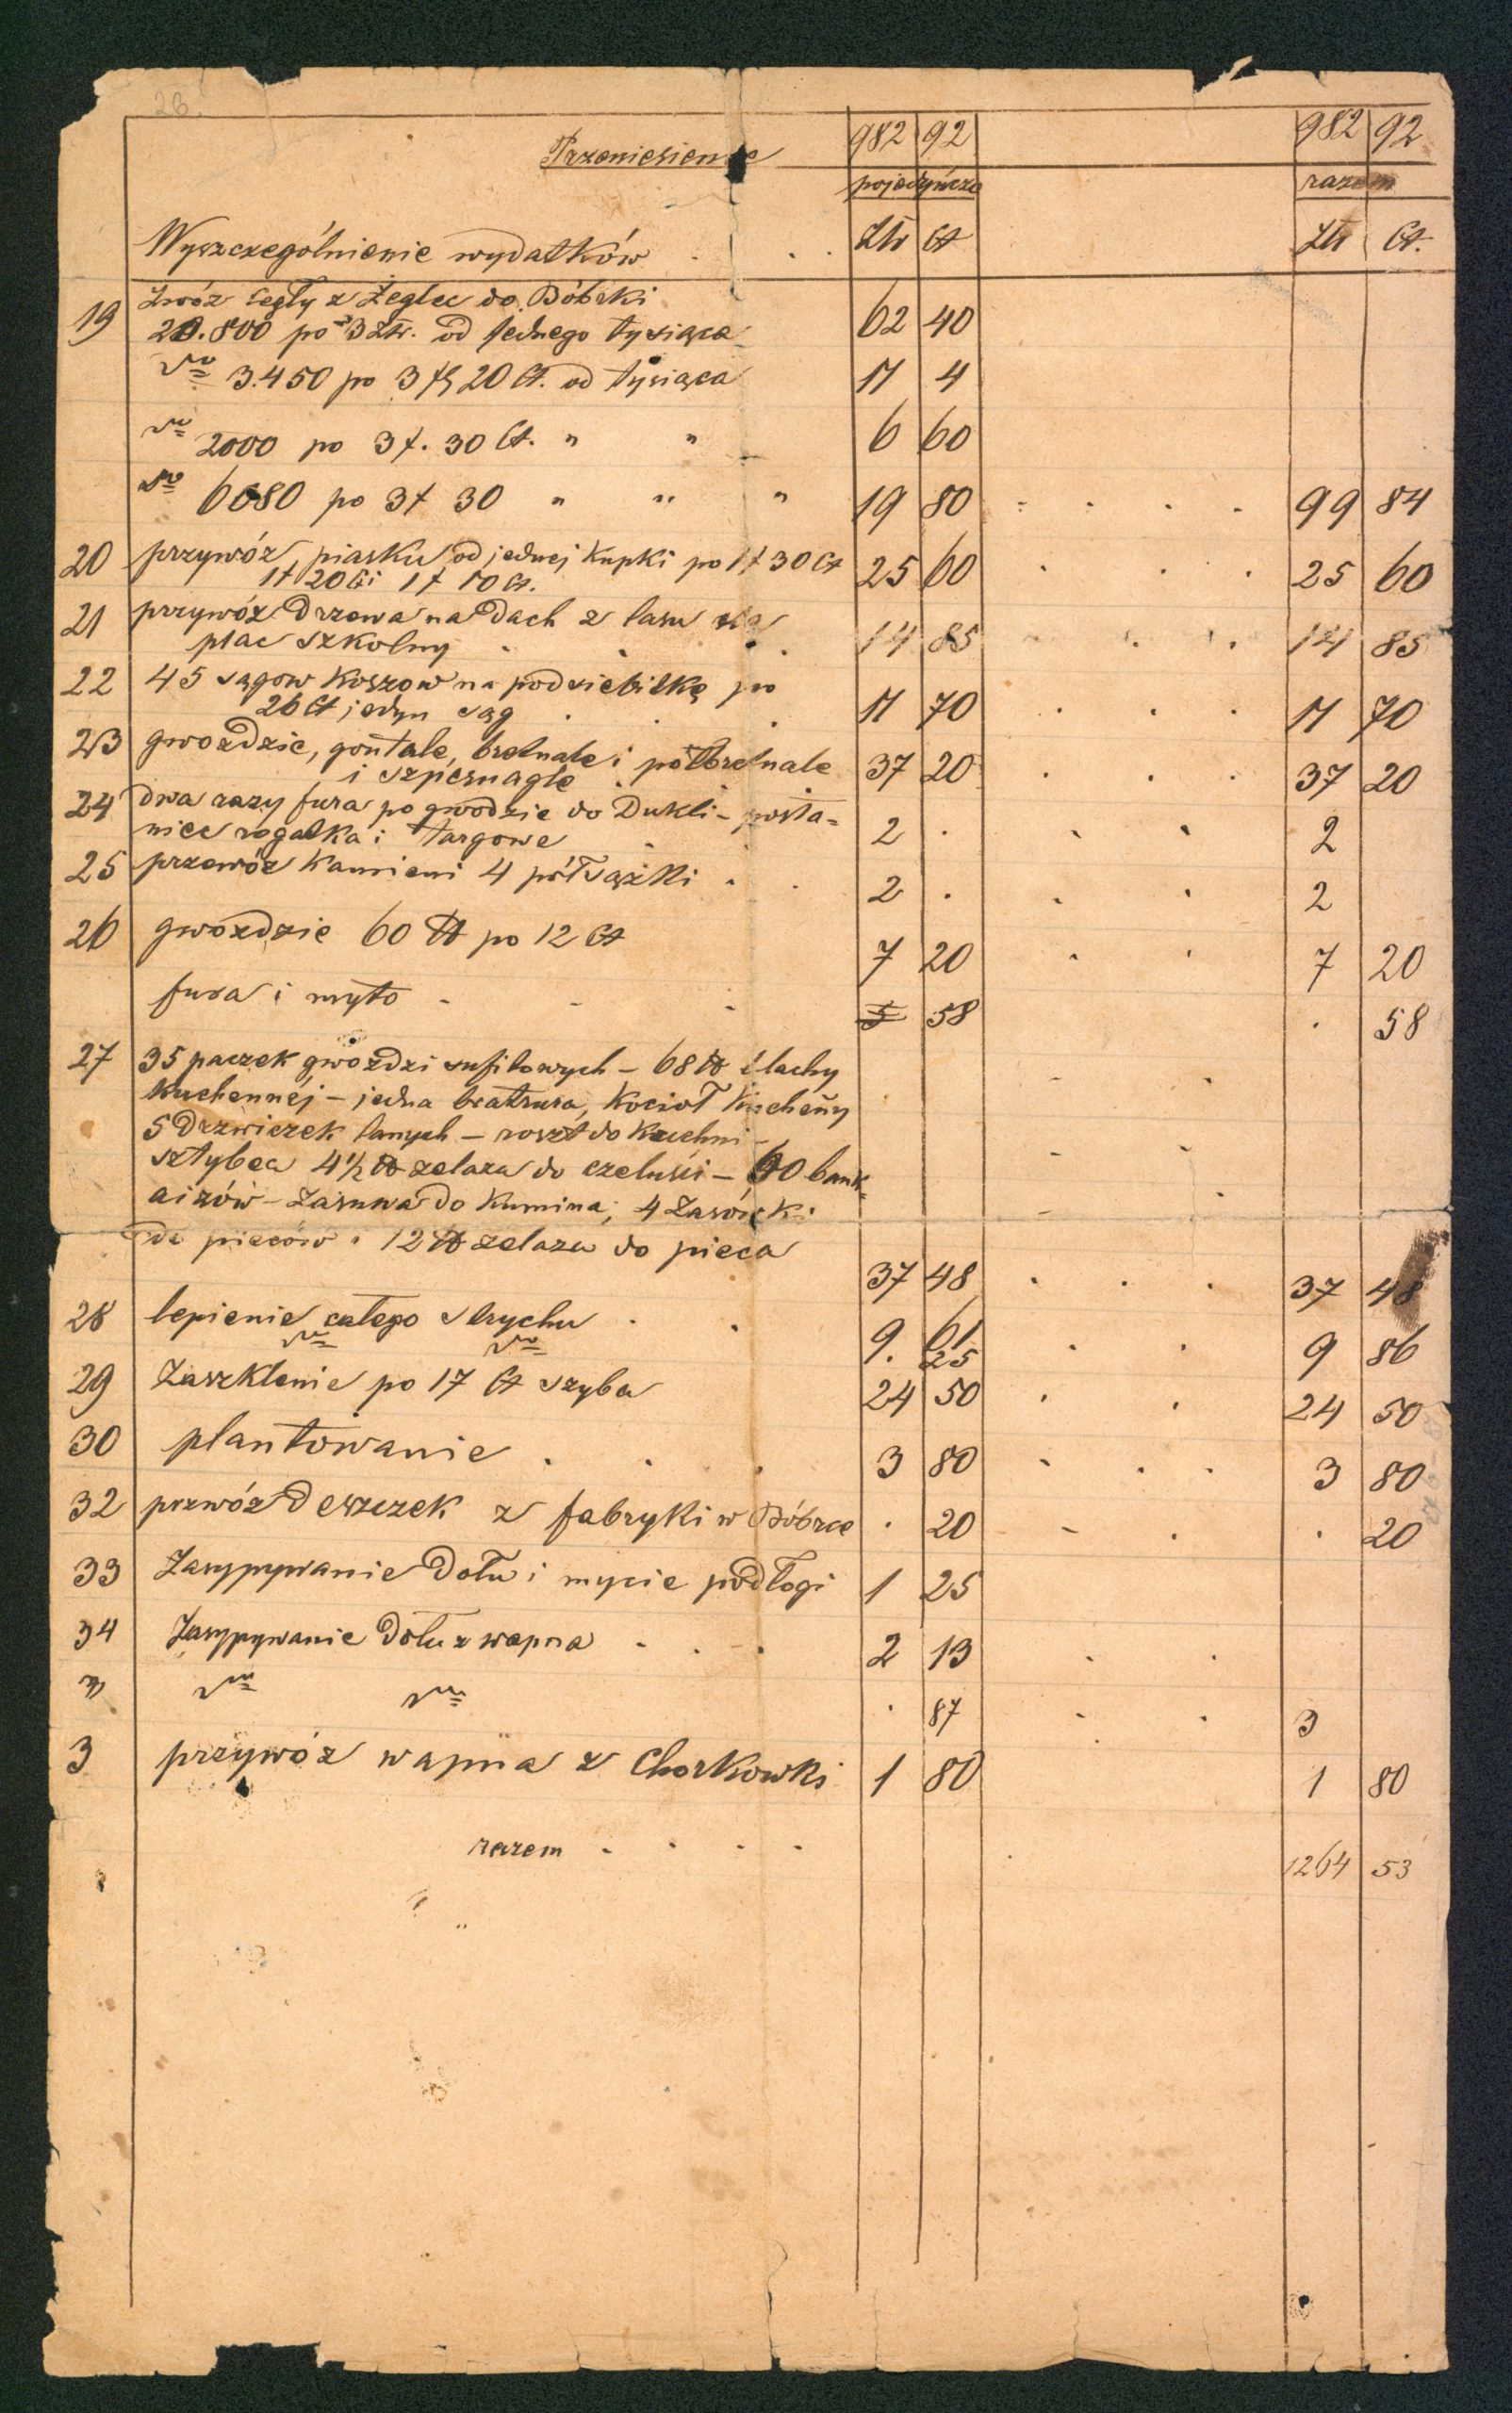 26.
Przeniesienie 982 92 982 92
pojedyńczo razem
Wyszczególnienie wydatków . . . Złr Ct Złr Ct.
19 Zwóz cegły z Żeglec do Bóbrki
20.800 po 3 złr. od jednego tysiąca 62 40
dto 3.450 po 3 zł 20 Ct. od tysiąca 11 4
dto 2000 po 3 f. 30 Ct. " " 6 60
dto 6080 po 3 f 30 " " " 19 80 . . . . 99 84
20 przywóz piasku od jednej kupki po 1 f 30 Ct 25 60 . . . 25 60
1 f 20 Ct i 1 f 10 Ct.
21 przywóz drzewa na dach z lasu na
plac szkolny . . . 14 85 . . . . 14 85
22 45 sągow koszow na podsiebitkę po
26 Ct jedyn sąg . . . 11 70 . . . 11 70
23 gwozdzie, gontale, bretnale i półbretnale 37 20 . . . 37 20
i szpernagle
24 dwa razy fura po gwodzie do Dukli – posta=
nice rogalka i targowe . . 2 . . . 2
25 przewóz kamieni 4 półsążki . . 2 . . . 2
26 gwozdzie 60 ℔ po 12 Ct 7 20 . . 7 20
fura i myto - - - 58 . 58
27 35 paczek gwoździ sufitowych – 68 ℔ blachy
kuchennej – jedna bratrura, kocioł kuchenny
5 drzwiczek lanych – roszt do kuchni –
sztybra 4 1/2 ℔ zelaza do czeluści – 60 bank=
aizów – Zasuwa do kumina, 4 Zasówki
do pieców i 12 ℔ zelaza do pieca
37 48 . . . 37 48
28 lepienie całego strychu . . 9. 61 . . 9 86
dto dto 25
29 Zaszklenie po 17 Ct szyba 24 50 . . 24 50
30 plantowanie . . . 3 80 . . . 3 80
32 przwóz deszczek z fabryki w Bóbrce . 20 - . . 20
33 Zasypywanie dołu i mycie podłogi 1 25
34 Zasypywanie dołu z wapna . . - . 2 13 . .
" dto dto . 87 . . 3
3 przywóz wapna z Chorkowki 1 80 1 80
razem . . . . 1264 53